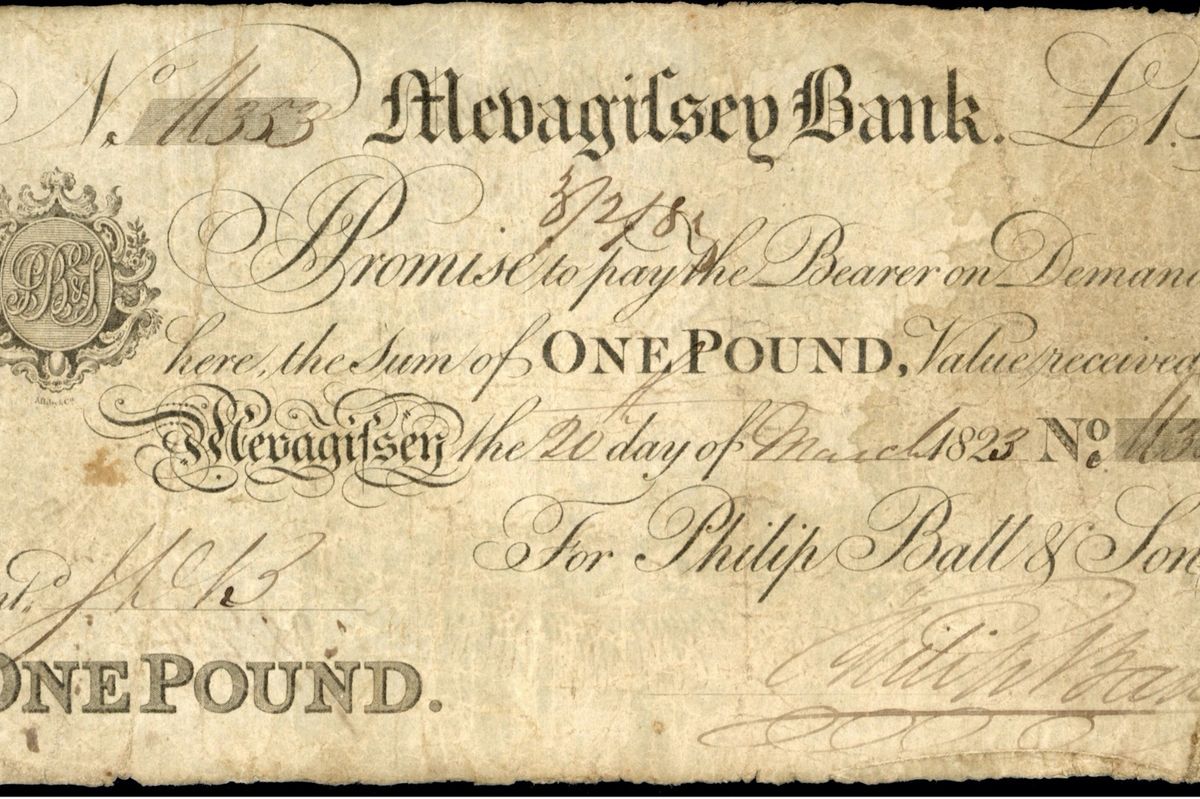 No 11353 Mevagiſsey Bank. £1.
3/2/8
Promise to pay the Bearer on Demand
here, the Sum of ONE POUND, Value received
Mevagiſsey the 20 day of March 1823 No 113
For Philip Ball & Son
PB&S
ONE POUND.
Philip Ball